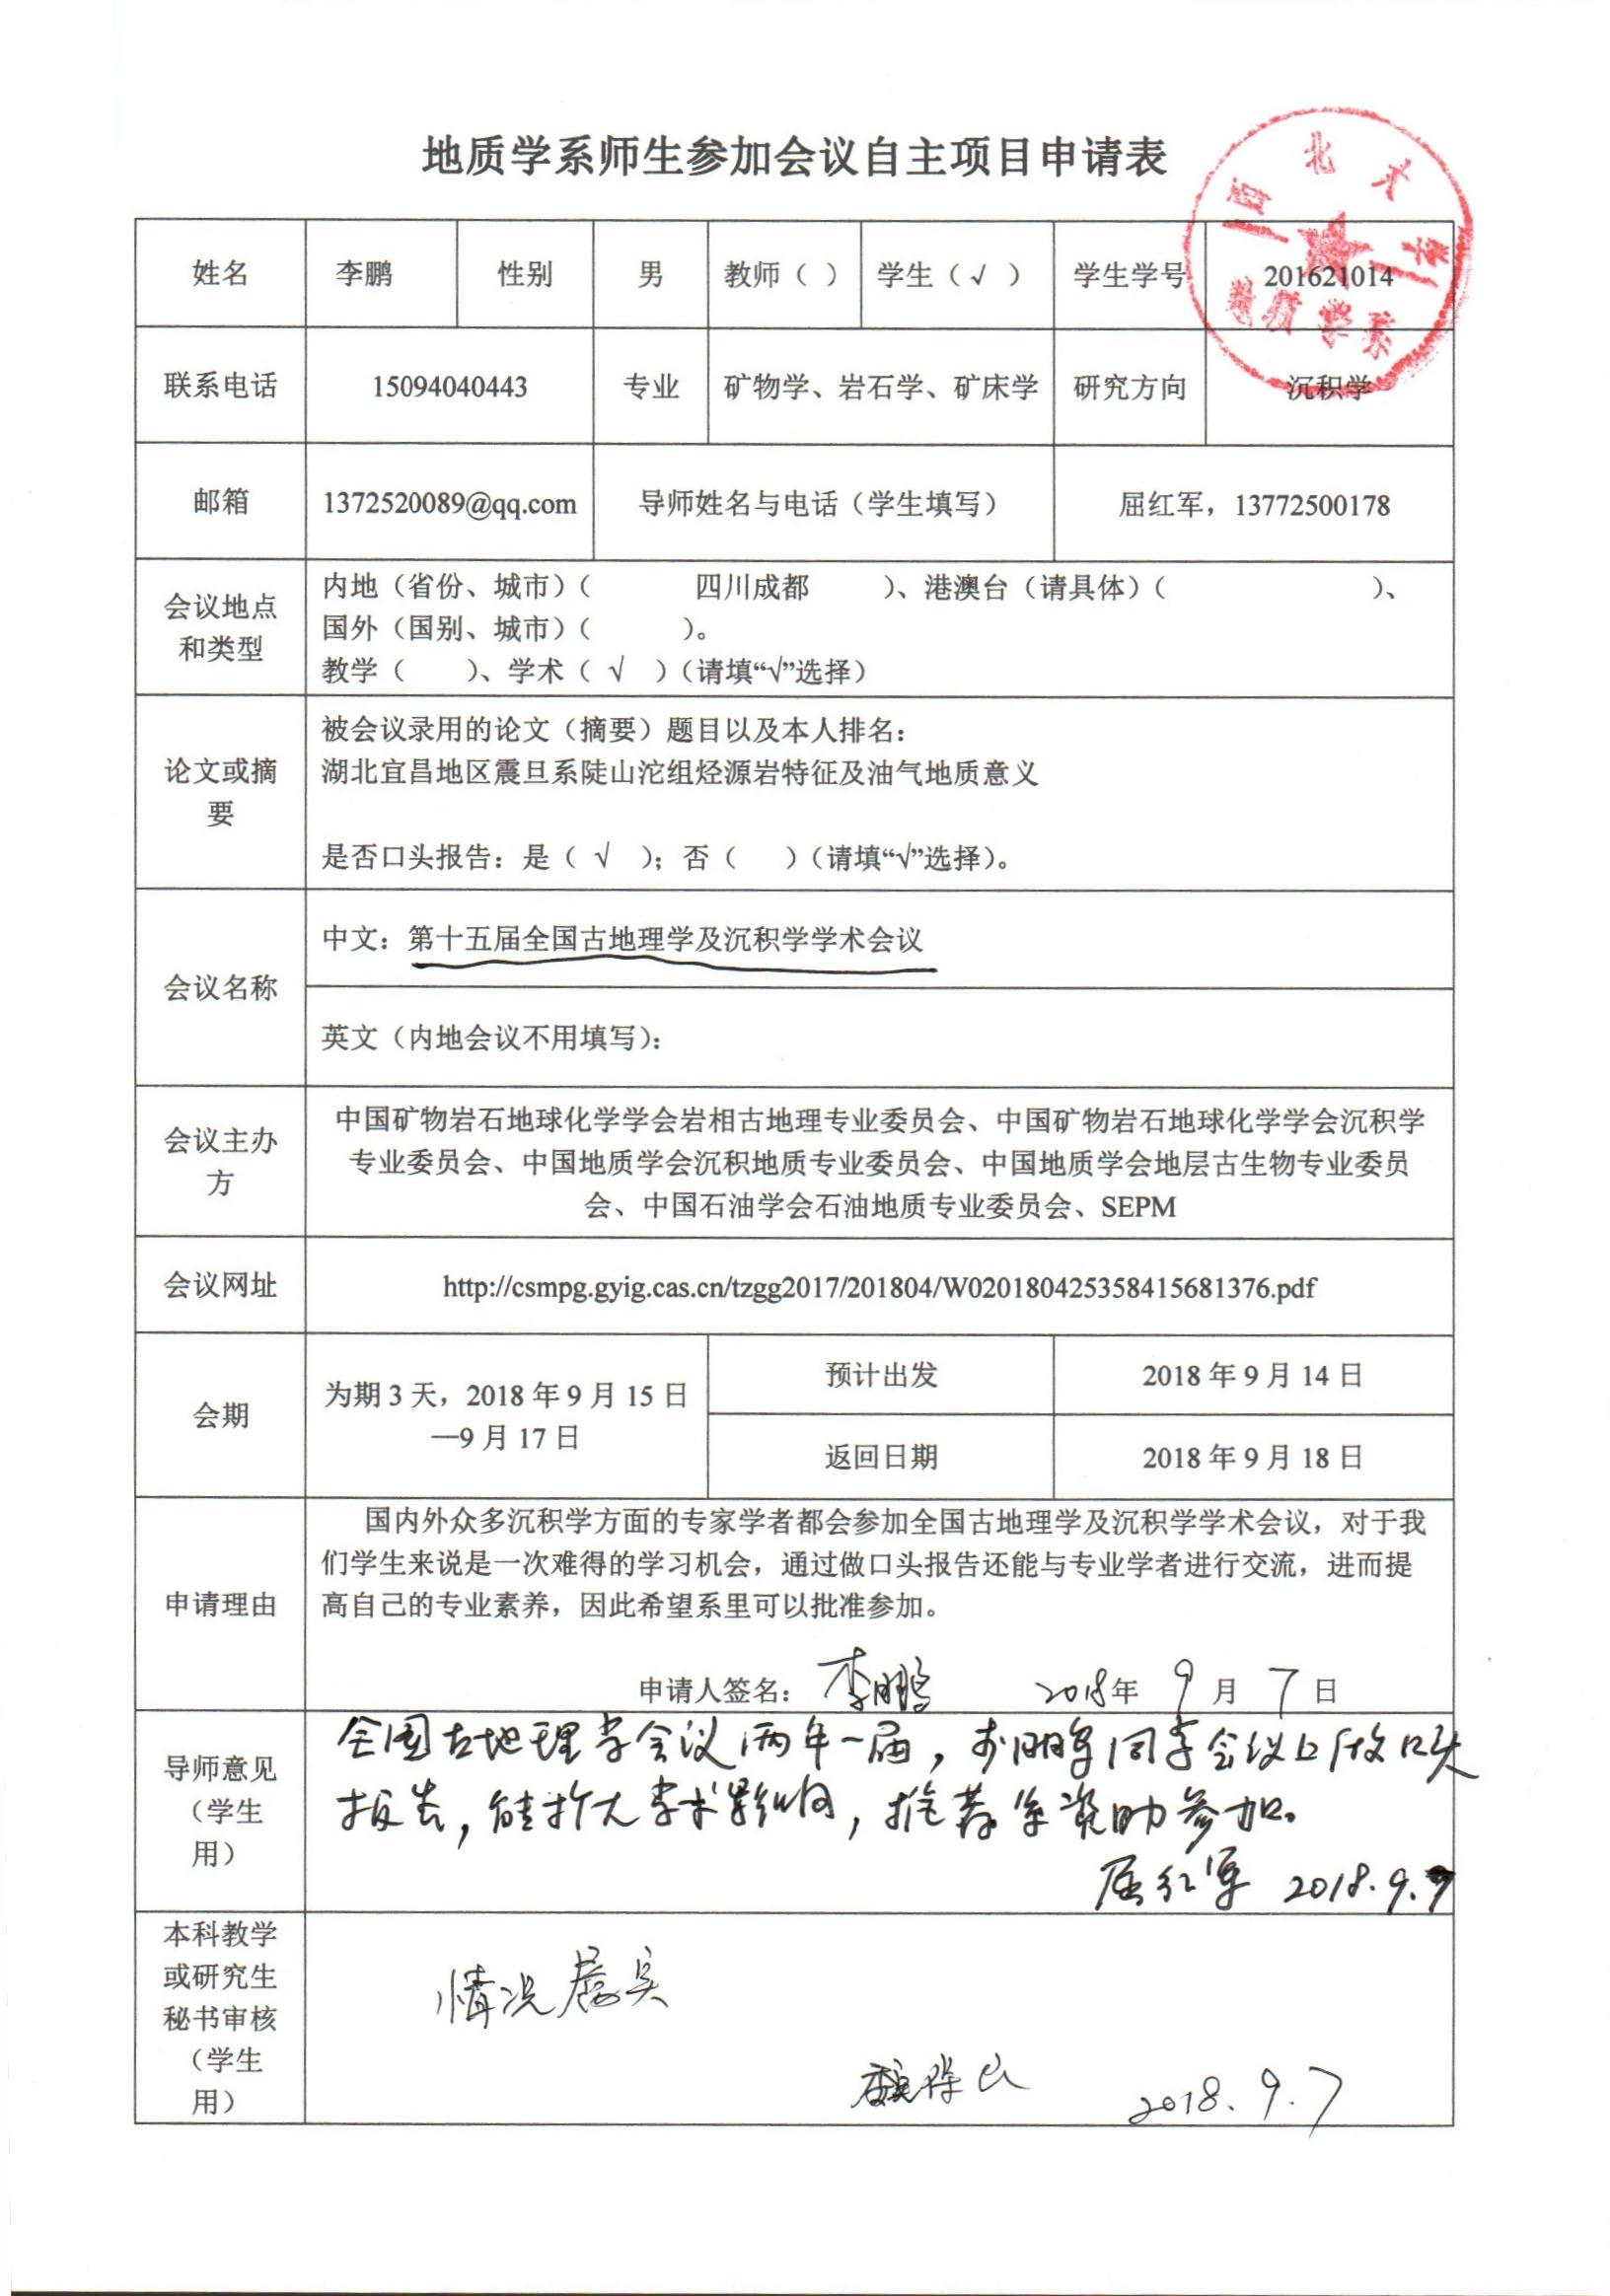 地质学系师生参加会议自主项目申请表
西北大学
地质学系
姓名 李鹏 性别 男 教师（ ） 学生（√ ） 学生学号 201621014
联系电话 15094040443 专业 矿物学、岩石学、矿床学 研究方向 沉积学
邮箱 1372520089@qq.com 导师姓名与电话（学生填写） 屈红军，13772500178
会议地点和类型
内地（省份、城市）（ 四川成都 ）、港澳台（请具体）（ ）、
国外（国别、城市）（ ）。
教学（ ）、学术（ √ ）（请填“√”选择）
论文或摘要
被会议录用的论文（摘要）题目以及本人排名：
湖北宜昌地区震旦系陡山沱组烃源岩特征及油气地质意义
是否口头报告：是（ √ ）；否（ ）（请填“√”选择）。
会议名称
中文：第十五届全国古地理学及沉积学学术会议
英文（内地会议不用填写）：
会议主办方
中国矿物岩石地球化学学会岩相古地理专业委员会、中国矿物岩石地球化学学会沉积学
专业委员会、中国地质学会沉积地质专业委员会、中国地质学会地层古生物专业委员
会、中国石油学会石油地质专业委员会、SEPM
会议网址 http://csmpg.gyig.cas.cn/tzgg2017/201804/W020180425358415681376.pdf
会期
为期 3 天，2018 年 9 月 15 日
—9 月 17 日
预计出发 2018 年 9 月 14 日
返回日期 2018 年 9 月 18 日
申请理由
国内外众多沉积学方面的专家学者都会参加全国古地理学及沉积学学术会议，对于我
们学生来说是一次难得的学习机会，通过做口头报告还能与专业学者进行交流，进而提
高自己的专业素养，因此希望系里可以批准参加。
申请人签名：李鹏 2018年 9 月 7 日
导师意见
（学生
用）
全国古地理学会议两年一届，李鹏军同学会议上做口头
报告，能扩大学术影响，推荐系资助参加。
屈红军 2018.9.7
本科教学
或研究生
秘书审核
（学生
用）
情况属实
2018.9.7